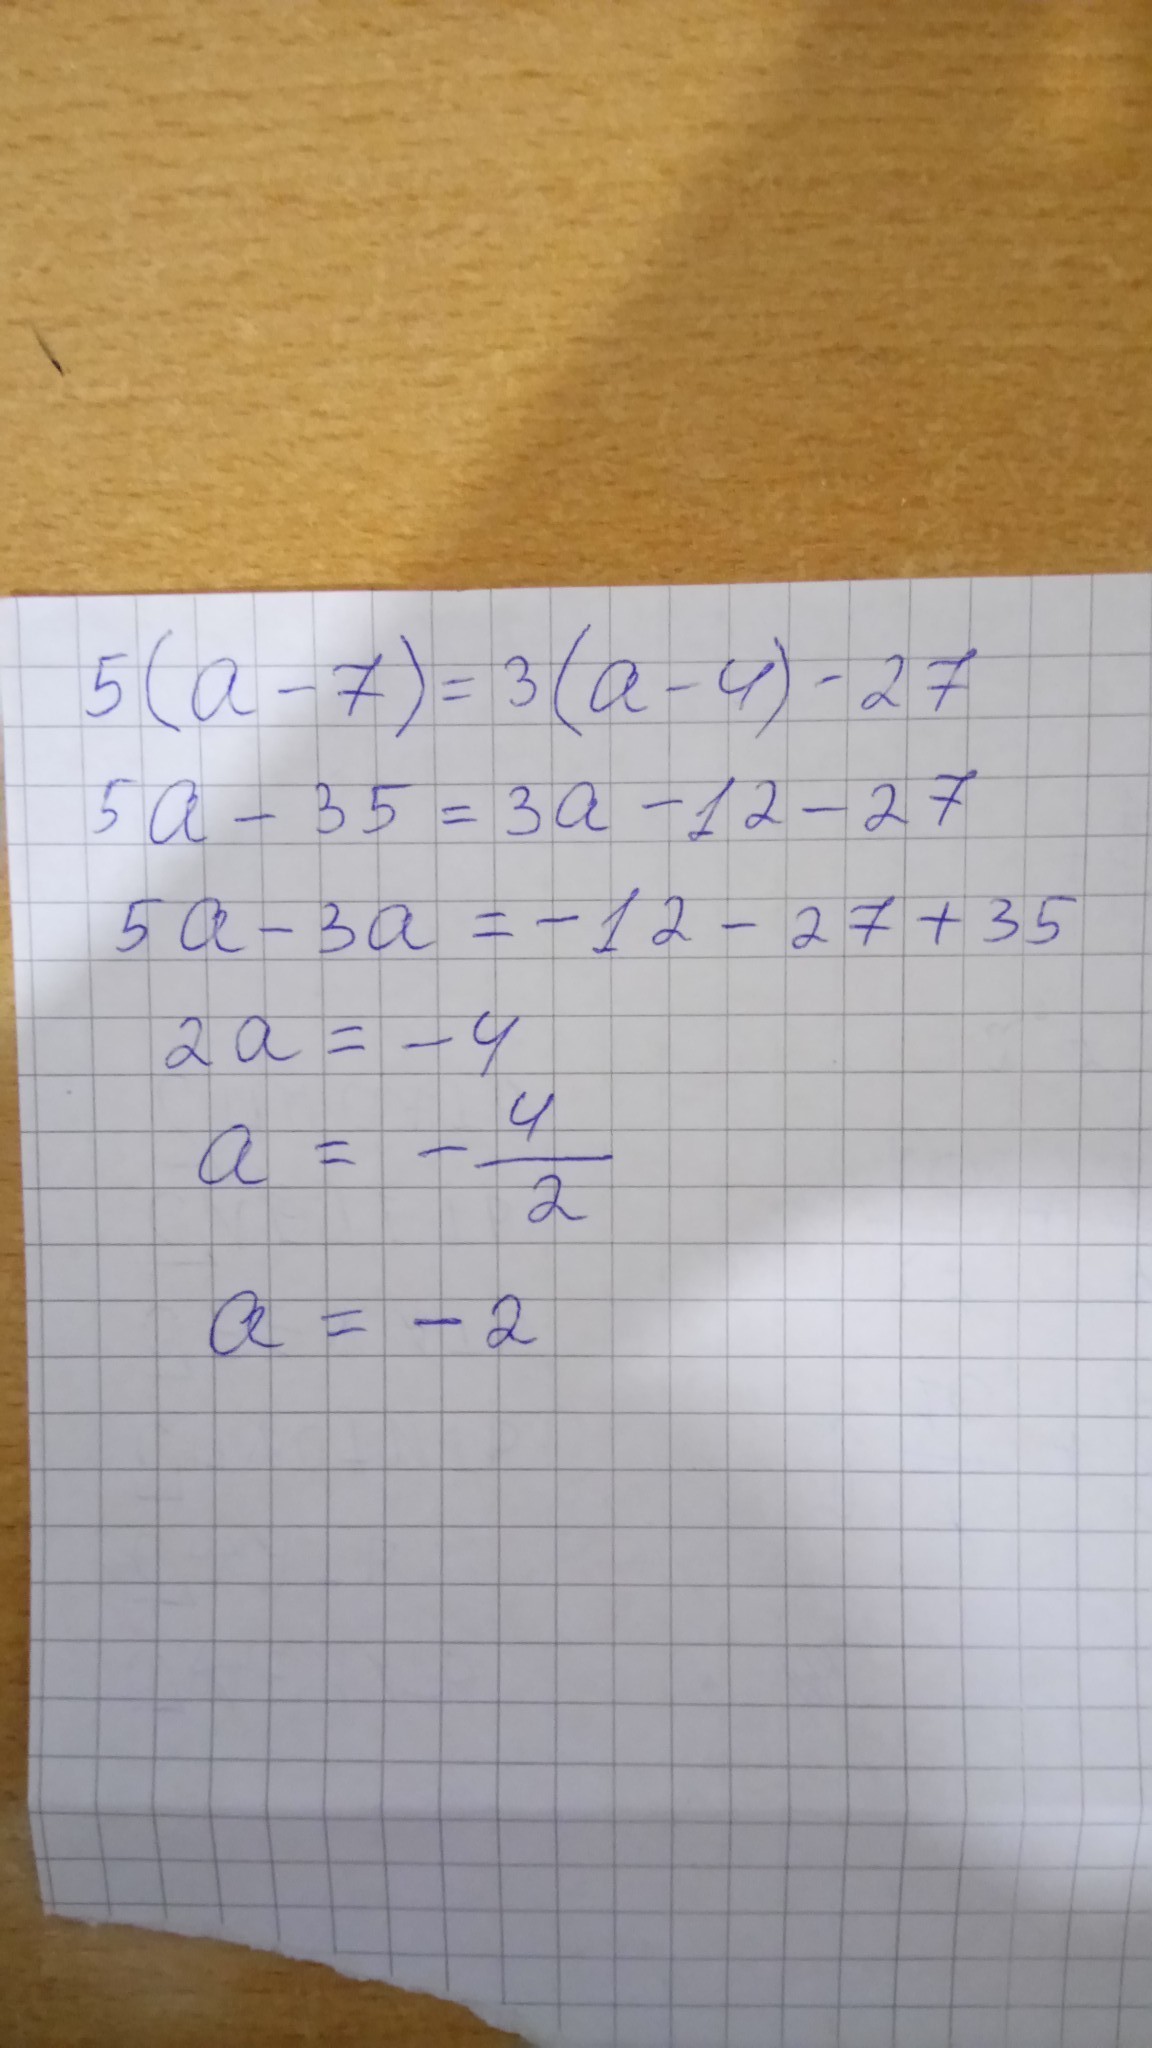 5(a-7)=3(a-4)-27
5a-35=3a-12-27
5a-3a=-12-27+35
2a=-4
a=-4/2
a=-2